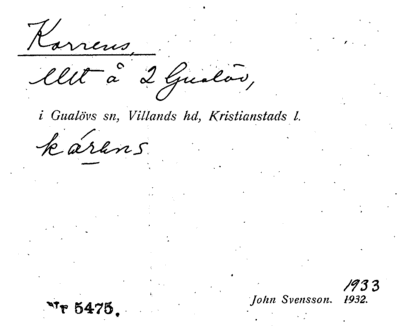 Korrens,
Ält å 2 Gualöv,
i Gualövs sn, Villands hd, Kristianstads l.
kárens
1933
John Svensson. 1932.
5475.